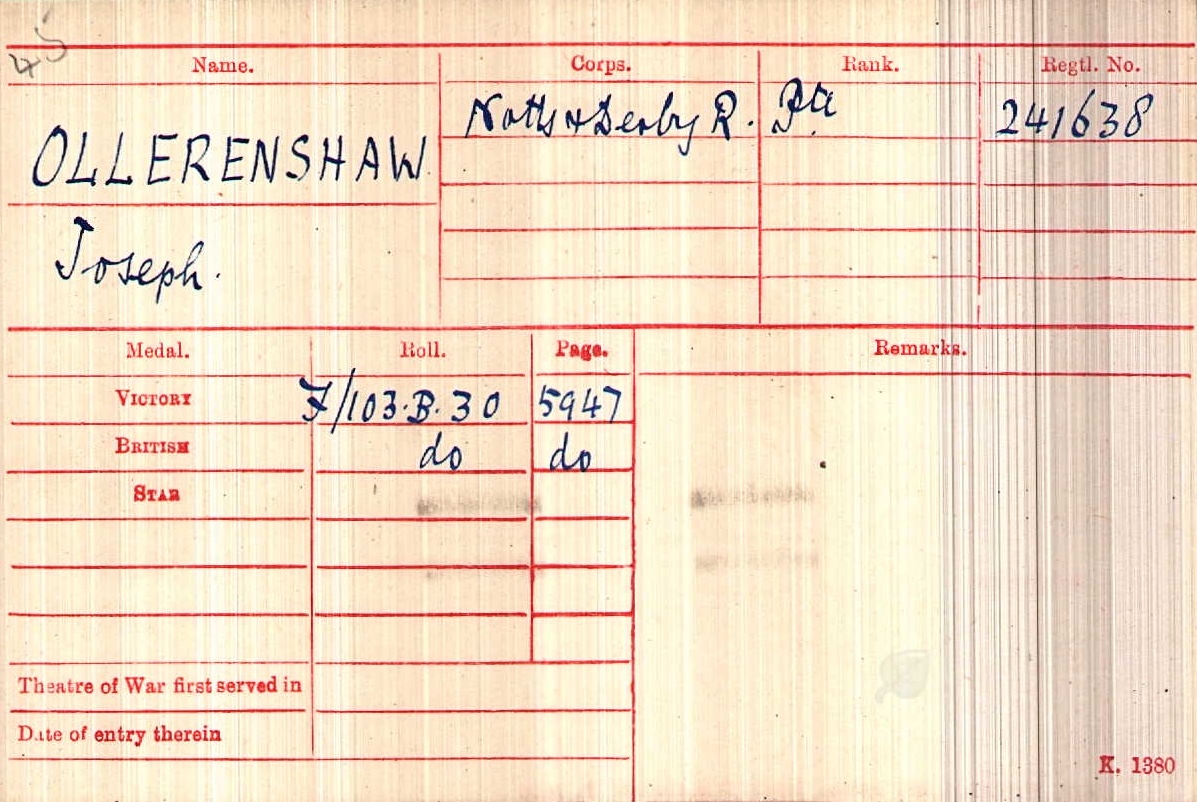 45
Name. Corps. Rank. Regtl. No.
OLLERENSHAW Notts & Derby R. Pte 241638
Joseph.
Medal. Roll. Page. Remarks.
VICTORY F/103.B.30 5947
BRITISH do do
STAR
Theatre of War first served in
Date of entry therein
K. 1380